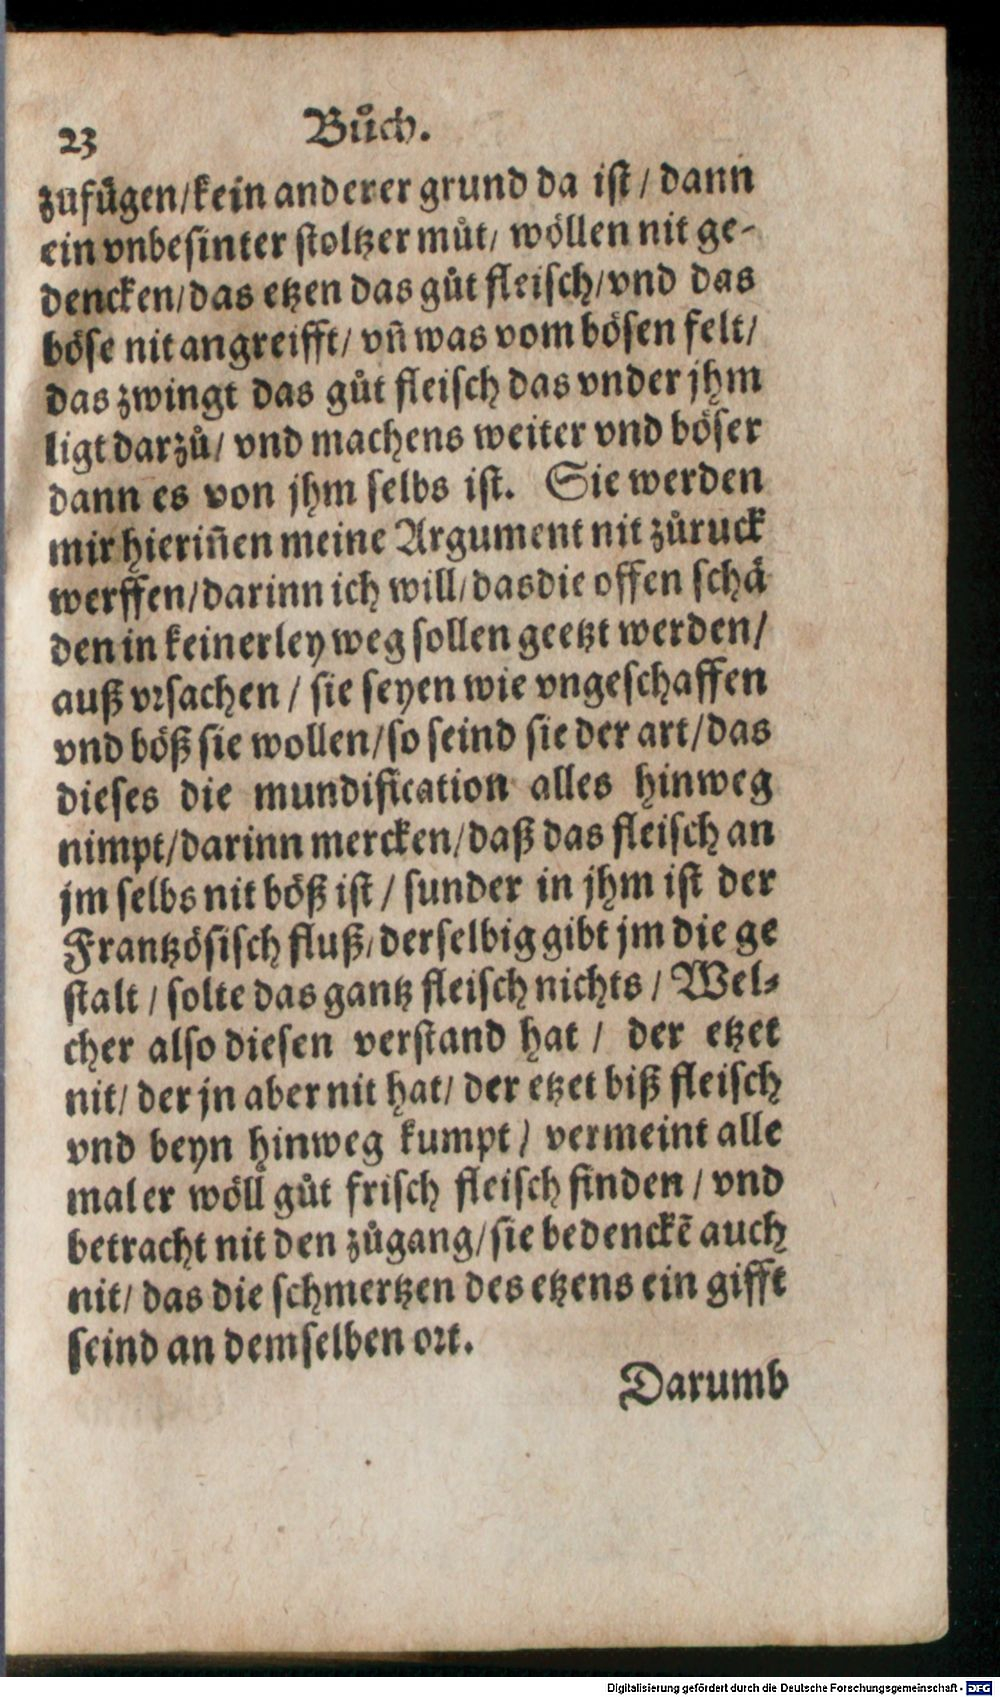 23 Bůch.
zufügen/kein anderer grund da ist/ dann
ein vnbesinter stoltzer můt/ wöllen nit ge-
dencken/das etzen das gůt fleisch/vnd das
böse nit angreifft/ vñ was vom bösen felt/
das zwingt das gůt fleisch das vnder jhm
ligt darzů/ vnd machens weiter vnd böser
dann es von jhm selbs ist. Sie werden
mir hieriñen meine Argument nit zůruck
werffen/darinn ich will/das die offen schä
den in keinerley weg sollen geetzt werden/
auß vrsachen / sie seyen wie vngeschaffen
vnd böß sie wollen/so seind sie der art/das
dieses die mundification alles hinweg
nimpt/darinn mercken/daß das fleisch an
jm selbs nit böß ist / sunder in jhm ist der
Frantzösisch fluß/derselbig gibt jm die ge
stalt / solte das gantz fleisch nichts / Wel-
cher also diesen verstand hat / der etzet
nit/ der jn aber nit hat/ der etzet biß fleisch
vnd beyn hinweg kumpt/ vermeint alle
mal er wöll gůt frisch fleisch finden / vnd
betracht nit den zůgang/sie bedenckẽ auch
nit/ das die schmertzen des etzens ein gifft
seind an demselben ort.
Darumb
Digitalisierung gefördert durch die Deutsche Forschungsgemeinschaft - DFG